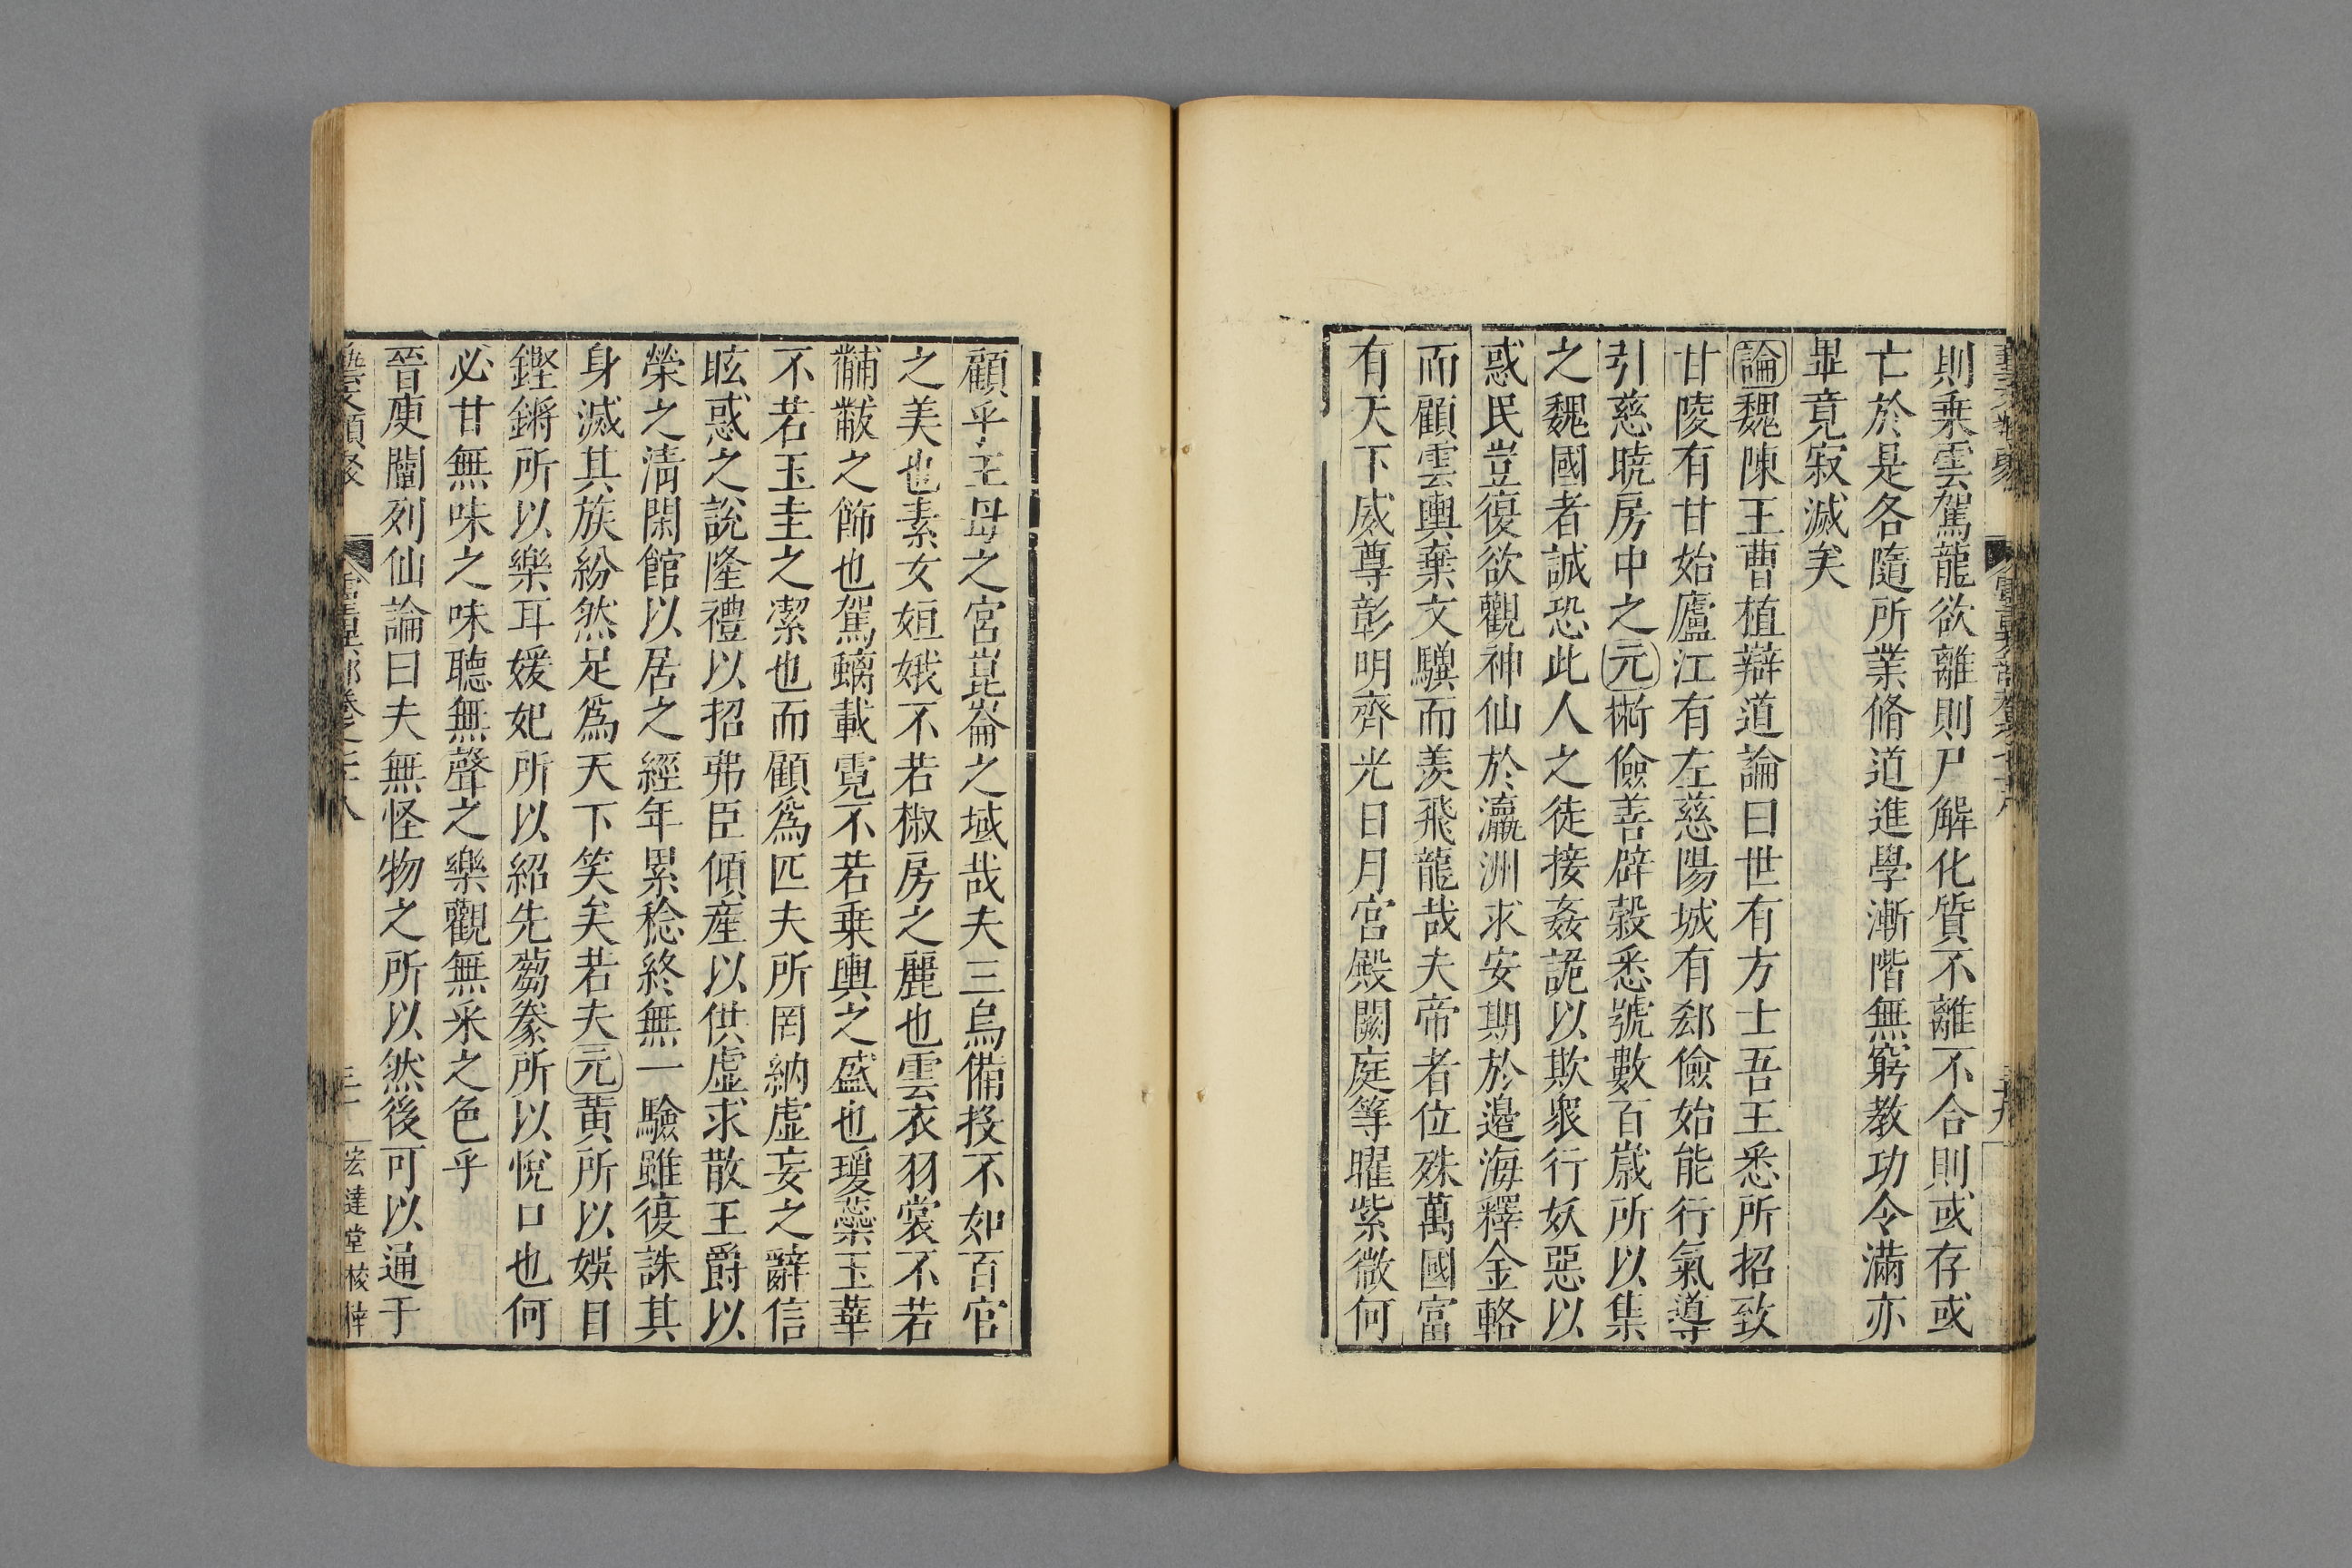 則乗雲駕龍欲離則尸解化質不離不合則或存或
亡於是各隨所業脩道進學漸階無窮教功令滿亦
畢竟寂滅矣
論魏陳王曹植辯道論曰世有方士吾王悉所招致
甘陵有甘始廬江有左慈陽城有郄儉始能行氣導
引慈曉房中之元術儉善辟穀悉號數百嵗所以集
之魏國者誠恐此人之徒接姦詭以欺衆行妖惡以
惑民豈復欲觀神仙於瀛洲求安期於邉海釋金輅
而顧雲輿棄文驥而羨飛龍哉夫帝者位殊萬國富
有天下威尊彰明齊光日月宮殿闕庭等曜紫微何
顧乎王母之宮崑崙之域哉夫三烏備投不如百官
之美也素女姮娥不若椒房之麗也雲衣羽裳不若
黼黻之飾也駕螭載霓不若乗輿之盛也瓊蘂玉華
不若玉圭之潔也而顧爲匹夫所罔納虚妄之辭信
眩惑之說隆禮以招弗臣傾産以供虚求散王爵以
榮之清閑館以居之經年累稔終無一驗雖復誅其
身滅其族紛然足爲天下笑矣若夫元黄所以娛目
鏗鏘所以樂耳媛妃所以紹先蒭豢所以悅口也何
必甘無味之味聽無聲之樂觀無采之色乎
晉庾闡列仙論曰夫無怪物之所以然後可以通于
藝文類聚　靈異部卷七十八　三十　宏達堂校梓